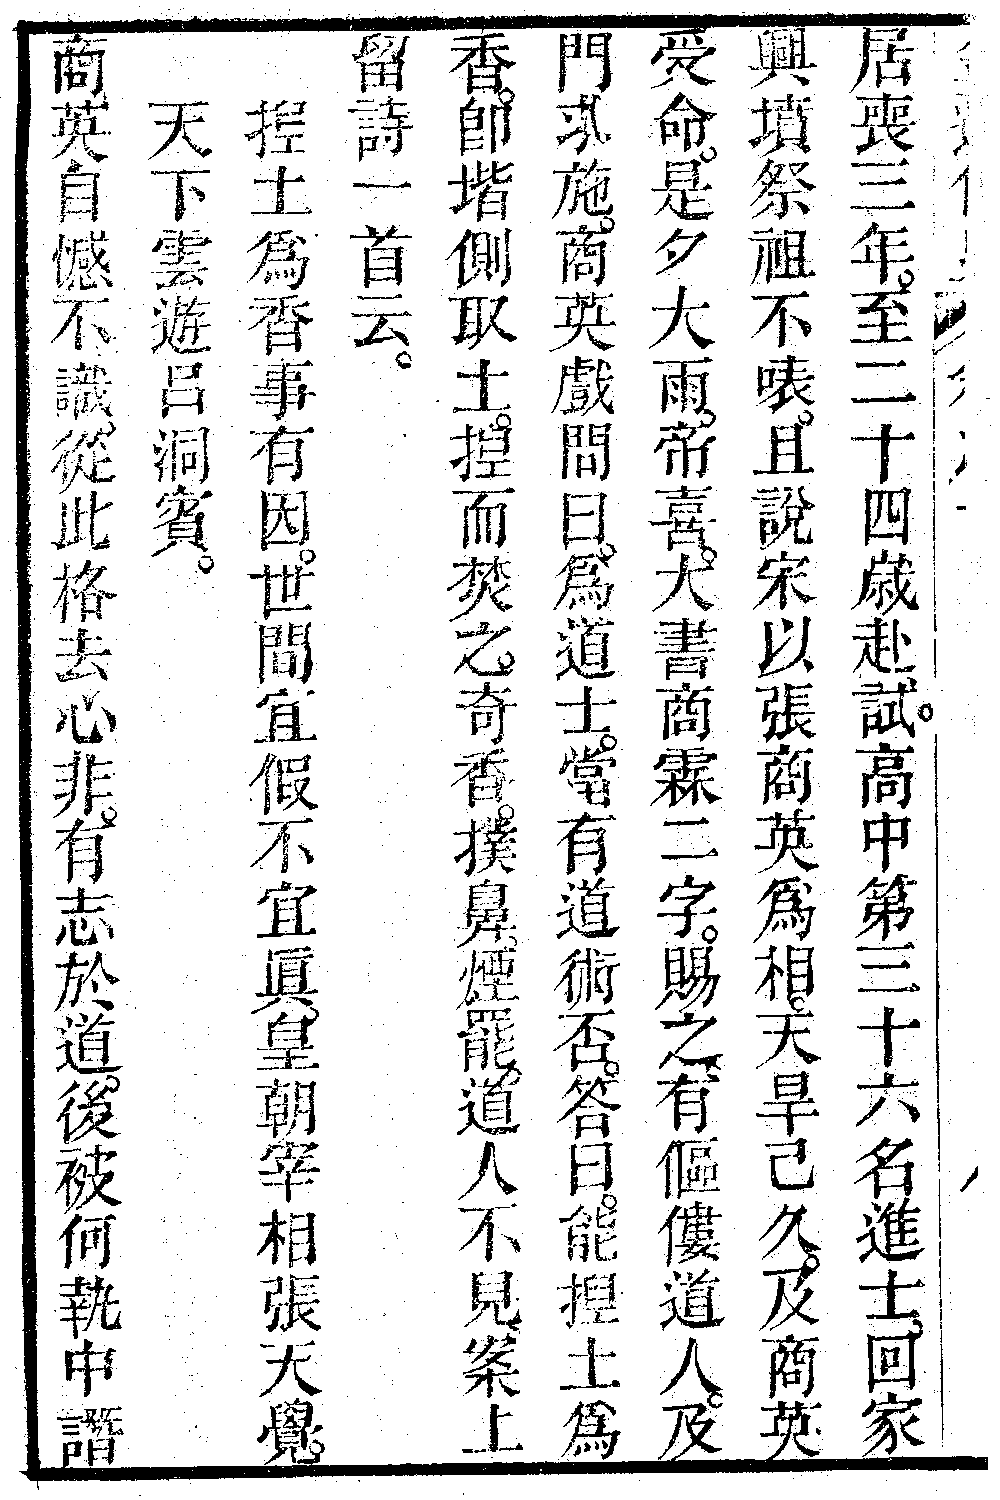 居喪三年。至二十四歲赴試。高中第三十六名進士。回家
興墳祭祖不㖨。且說宋以張商英爲相。天旱己久。及商英
受命。是夕大雨。帝喜。大書商霖二字。賜之。有傴僂道人。及
門求施。商英戲問曰。爲道士。當有道術否。答曰。能揑土爲
香。卽堦側取土。揑而焚之。奇香。撲鼻。煙罷。道人不見。案上
留詩一首云。
揑土爲香事有因。世間宜假不宜眞。皇朝宰相張天覺。
天下雲遊呂洞賓。
商英自憾不識。從此格去心非。有志於道。後被何執中譖